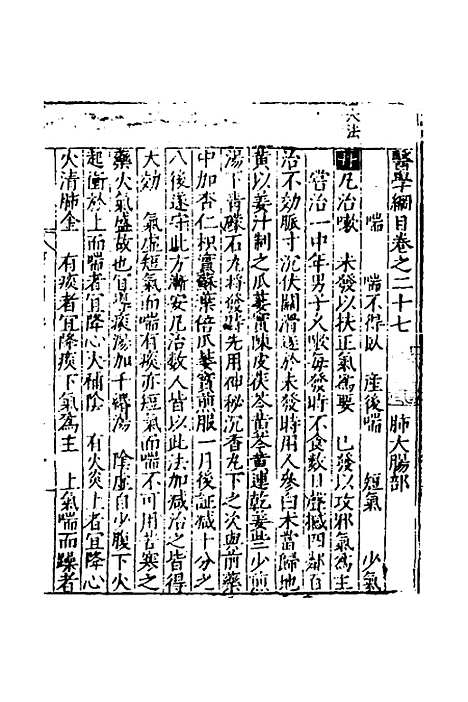 大法
醫學綱目卷之二十七 肺大腸部
喘 喘不得臥 産後喘 短氣 少氣
丹凡治嗽 未發以扶正氣爲要 已發以攻邪氣爲主
嘗治一中年男子久嗽每發時不食數日聲撼四鄰百
治不効脈寸沉伏關滑遂於未發時用人參白朮當歸地
黃以姜汁制之瓜蔞實陳皮茯苓黃芩黃連乾姜些少煎
湯下青礞石丸將發時先用神秘沉香丸下之次與前藥
中加杏仁枳實蘇葉倍瓜蔞實煎服一月後証減十分之
八後遂守此方漸安凡治數人皆以此法加減治之皆得
大効 氣虛短氣而喘有痰亦短氣而喘不可用苦寒之
藥火氣盛故也宜導痰湯加千緡湯 陰虛自少腹下火
起衝於上而喘者宜降心火補陰 有火炎上者宜降心
火清肺金 有痰者宜降痰下氣爲主 上氣喘而躁者